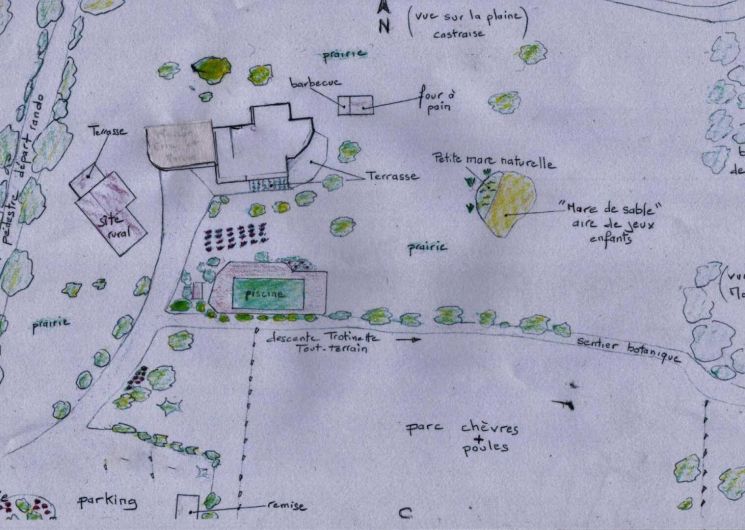 AN
(vue sur la plaine
castraise
prairie
barbecue
four à
pain
Terrasse
pédestre départ rando
Terrasse
Petite mare naturelle
Gîte
rural
"Mare de sable"
aire de jeux
enfants
prairie
piscine
prairie
descente Trotinette
Tout-terrain
sentier botanique
parc chèvres
+
poules
parking
remise
C